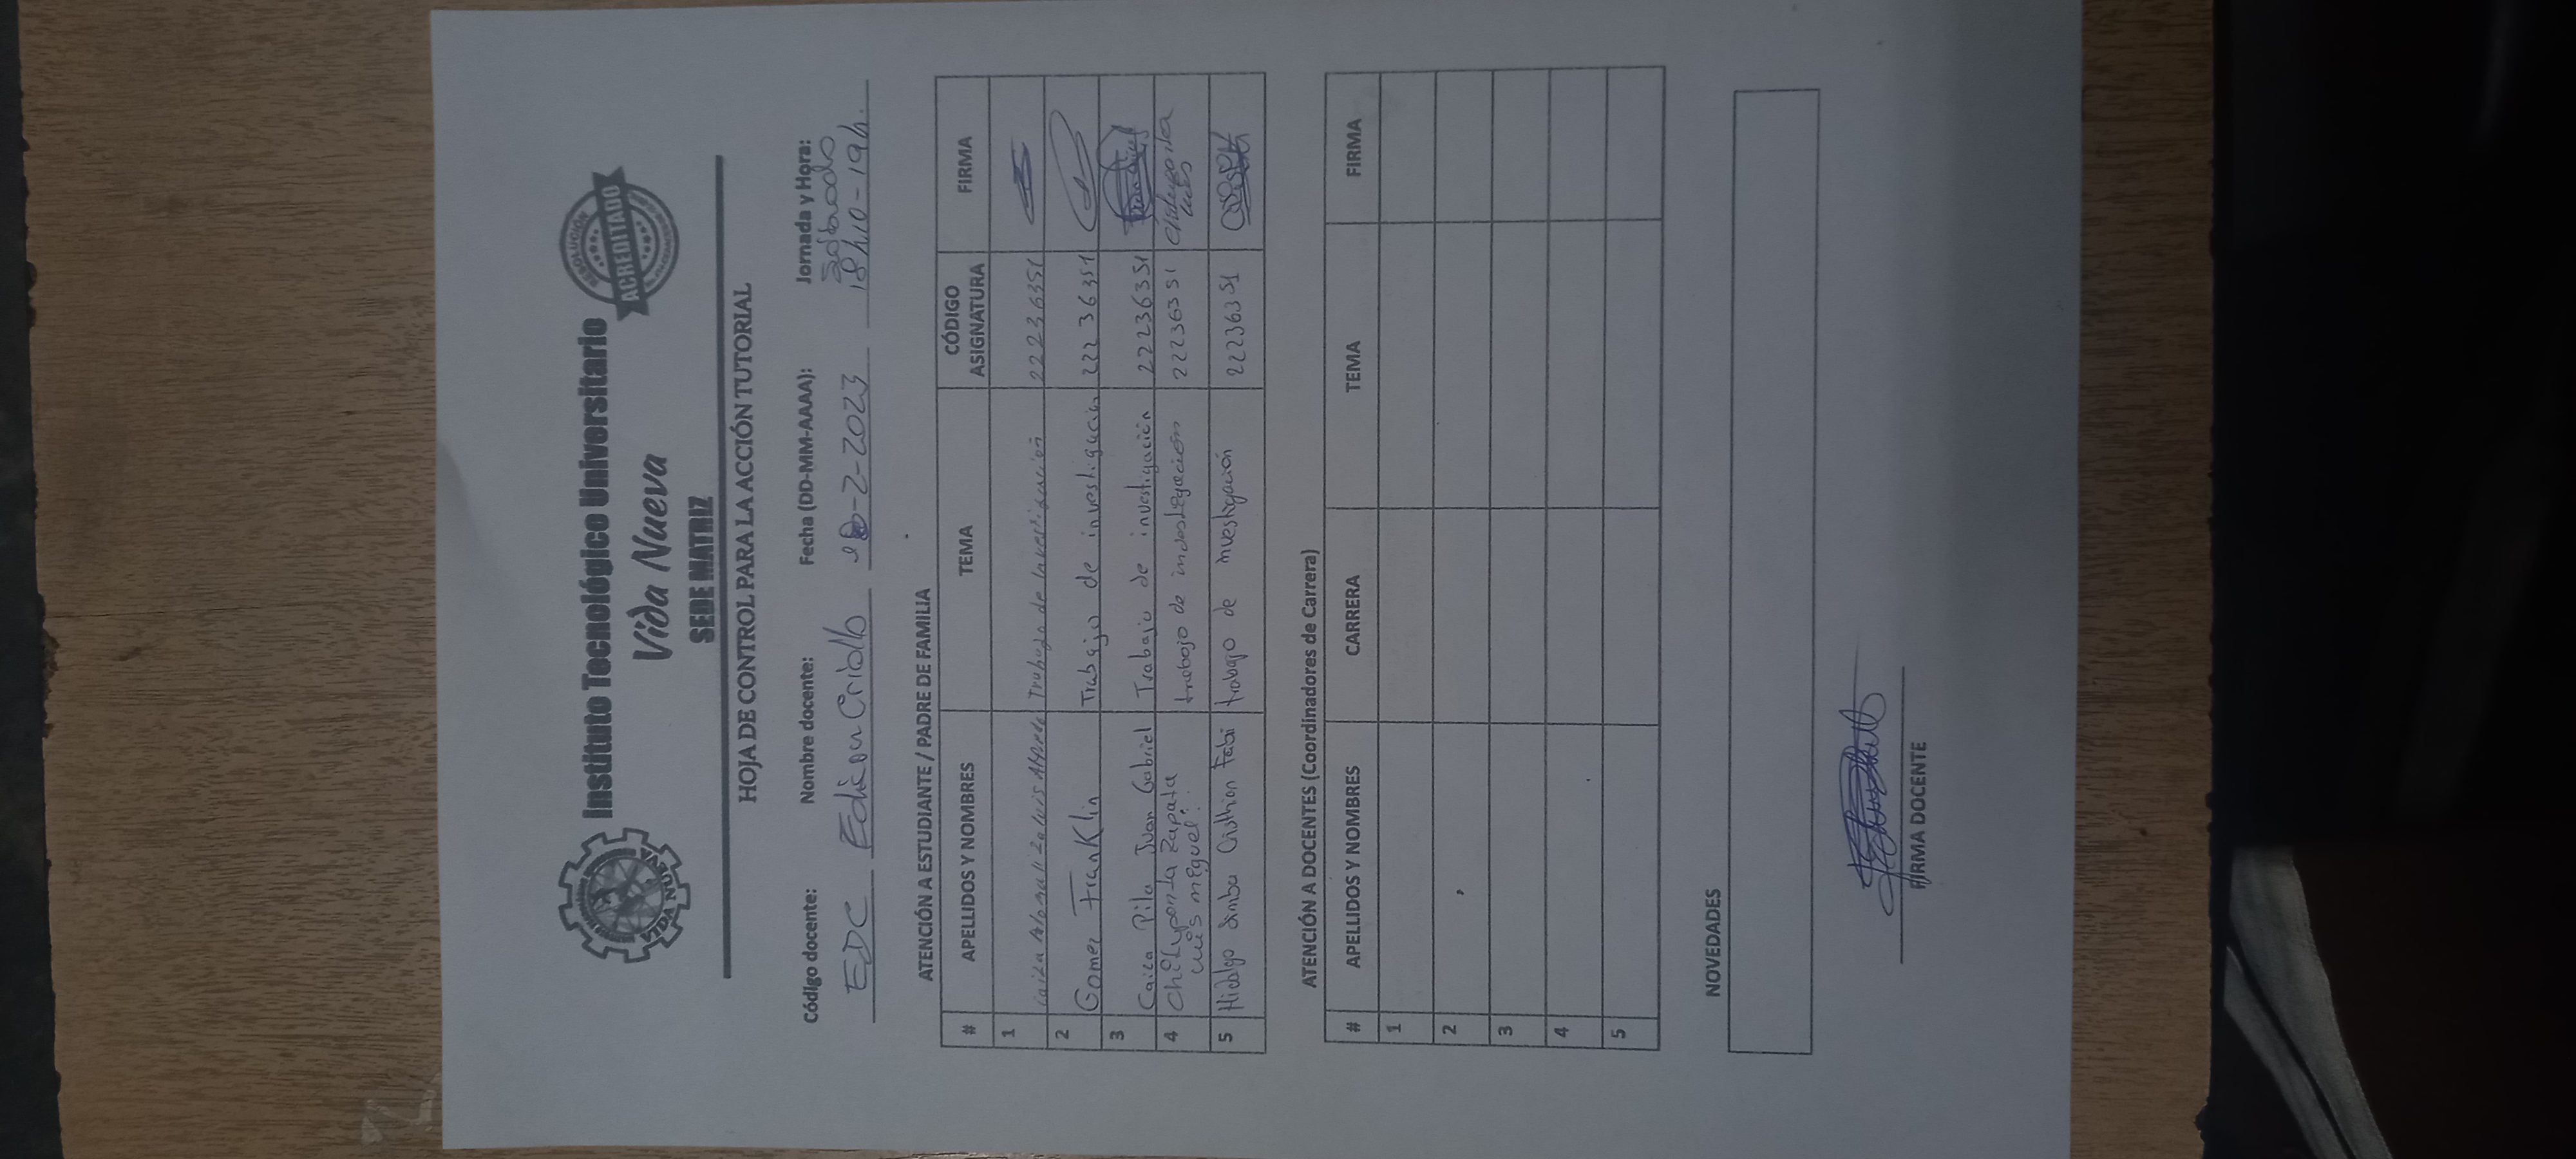 Instituto Tecnológico Universitario
Vida Nueva
SEDE MATRIZ
VIDA NUEVA
RESOLUCIÓN
ACREDITADO
HOJA DE CONTROL PARA LA ACCIÓN TUTORIAL
Código docente: Nombre docente: Fecha (DD-MM-AAAA): Jornada y Hora:
Sábado
EDC Edison Criollo -2-2023 18h10-19h.
ATENCIÓN A ESTUDIANTE / PADRE DE FAMILIA
# APELLIDOS Y NOMBRES TEMA CÓDIGO ASIGNATURA FIRMA
1 Caiza Luis Alfredo Trabajo de Investigación 22236351
2 Gomez Franklin Trabajo de investigación 22236351
3 Caiza Pila Juan Gabriel Trabajo de investigación 22236351
4 Chiluponta Zapata trabajo de investigación 22236351 Chiluponta
Luis Miguel Luis
5 Hidalgo Simba Cristhian Fabi trabajo de investigación 22236351
ATENCIÓN A DOCENTES (Coordinadores de Carrera)
# APELLIDOS Y NOMBRES CARRERA TEMA FIRMA
1
2
3
4
5
NOVEDADES
FIRMA DOCENTE